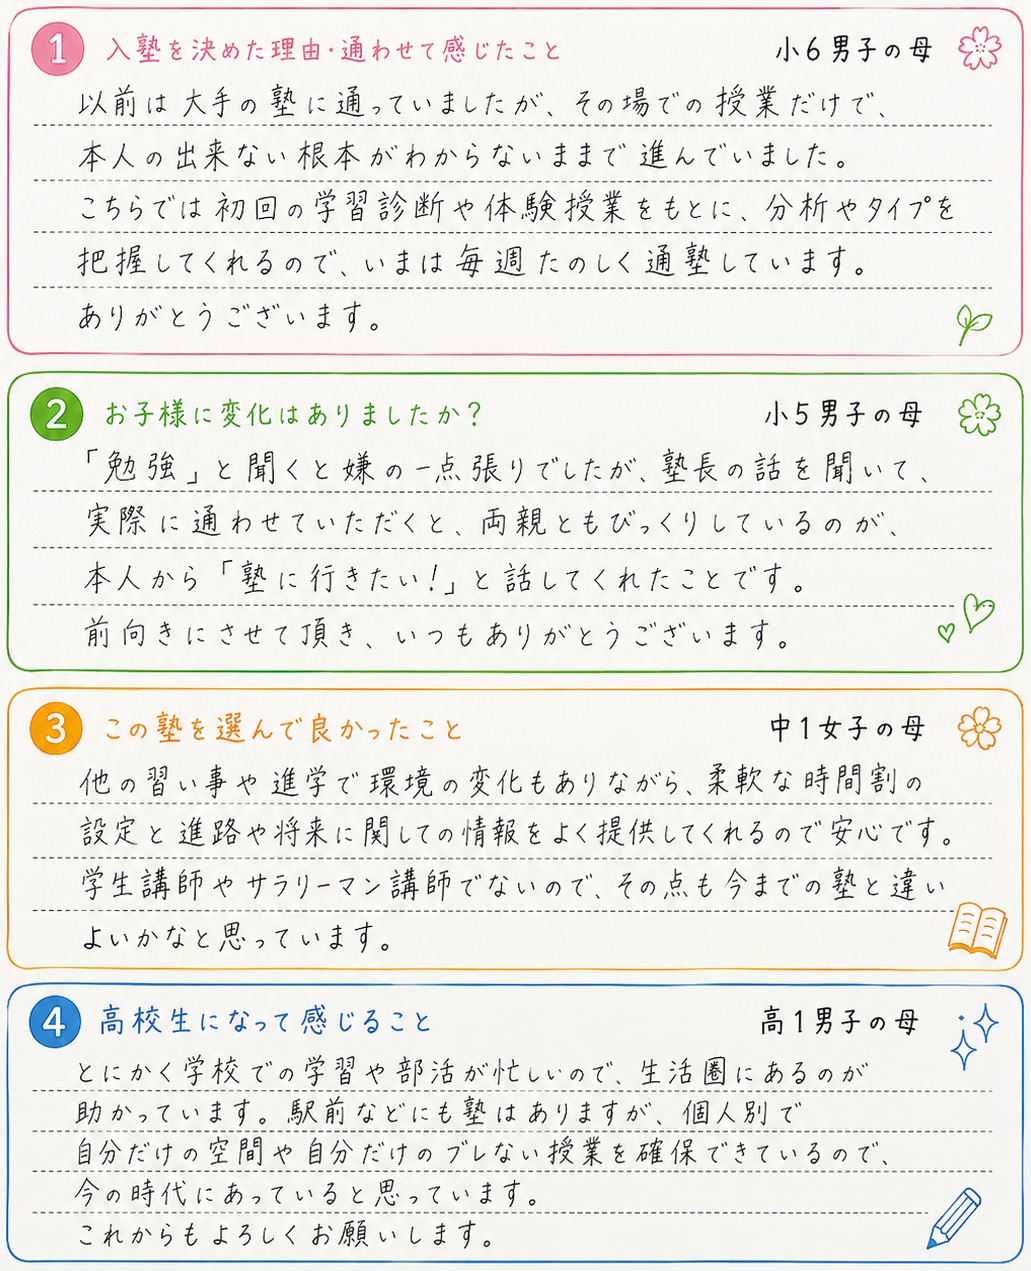 1 入塾を決めた理由・通わせて感じたこと 小6男子の母
以前は大手の塾に通っていましたが、その場での授業だけで、
本人の出来ない根本がわからないままで進んでいました。
こちらでは初回の学習診断や体験授業をもとに、分析やタイプを
把握してくれるので、いまは毎週たのしく通塾しています。
ありがとうございます。
2 お子様に変化はありましたか？ 小5男子の母
「勉強」と聞くと嫌の一点張りでしたが、塾長の話を聞いて、
実際に通わせていただくと、両親ともびっくりしているのが、
本人から「塾に行きたい！」と話してくれたことです。
前向きにさせて頂き、いつもありがとうございます。
3 この塾を選んで良かったこと 中1女子の母
他の習い事や進学で環境の変化もありながら、柔軟な時間割の
設定と進路や将来に関しての情報をよく提供してくれるので安心です。
学生講師やサラリーマン講師でないので、その点も今までの塾と違い
よいかなと思っています。
4 高校生になって感じること 高1男子の母
とにかく学校での学習や部活が忙しいので、生活圏にあるのが
助かっています。駅前などにも塾はありますが、個人別で
自分だけの空間や自分だけのブレない授業を確保できているので、
今の時代にあっていると思っています。
これからもよろしくお願いします。